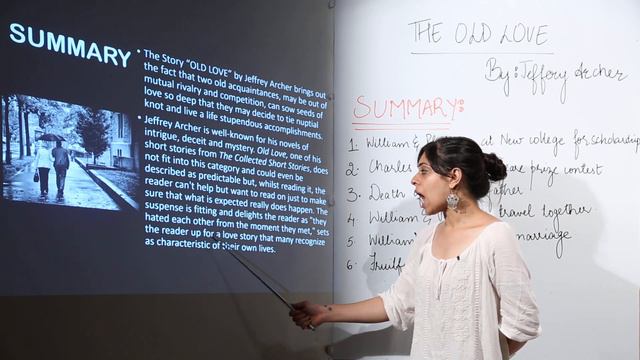 SUMMARY
• The Story "OLD LOVE" by Jeffrey Archer brings out
the fact that two old acquaintances, may be out of
mutual rivalry and competition, can sow seeds of
love so deep that they may decide to tie nuptial
knot and live a life stupendous accomplishments.
• Jeffrey Archer is well-known for his novels of
intrigue, deceit and mystery. Old Love, one of his
short stories from The Collected Short Stories, does
not fit into this category and could even be
described as predictable but, whilst reading it, the
reader can't help but want to read on just to make
sure that what is expected really does happen. The
suspense is fitting and delights the reader as "they
hated each other from the moment they met," sets
the reader up for a love story that many recognize
as characteristic of their own lives.
THE OLD LOVE
By: Jeffery Archer
SUMMARY:
1. William & at New college for scholarship
2. Charles prize contest
3. Death
4. William & travel together
5. William marriage
6.